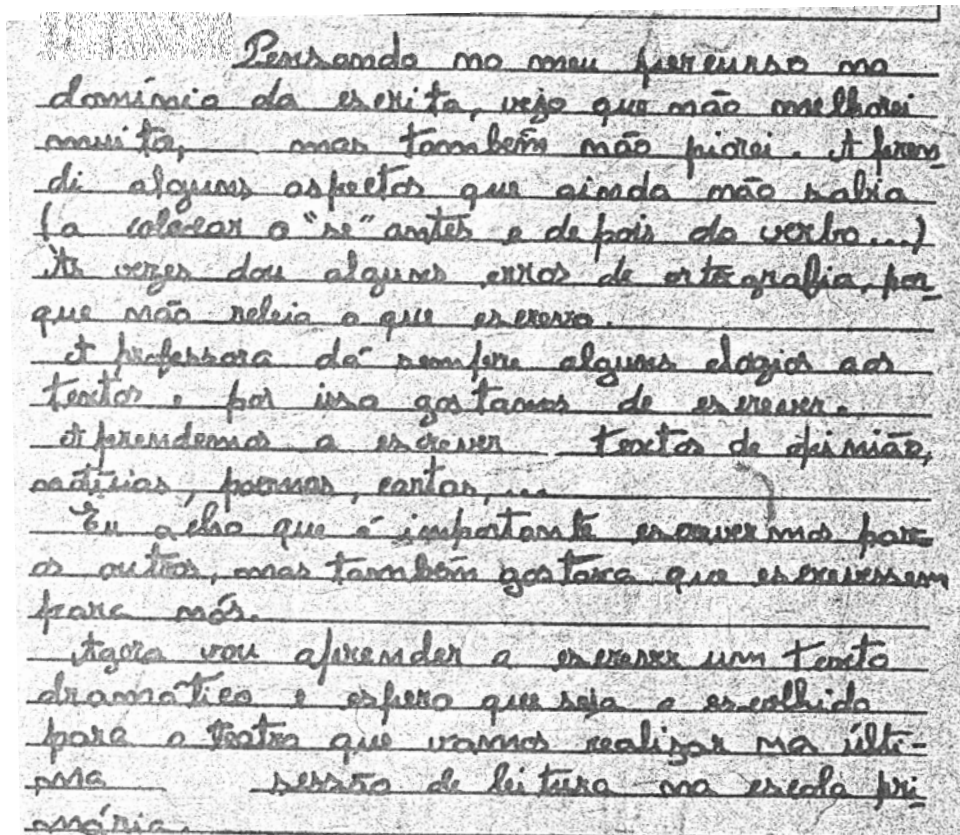 Pensando no meu percurso no
domínio da escrita, vejo que não melhorei
muito, mas também não piorei. Apren
di alguns aspectos que ainda não sabia
(a colocar o "se" antes e depois do verbo...)
Às vezes dou alguns erros de ortografia, por-
que não releio o que escrevo.
A professora dá sempre alguns elogios aos
textos e por isso gostamos de escrever.
Aprendemos a escrever textos de opinião,
notícias, poemas, cartas, ...
Eu acho que é importante escrevermos para
os outros, mas também gostava que escrevessem
para nós.
Agora vou aprender a escrever um texto
dramático e espero que seja o escolhido
para o teatro que vamos realizar na últi-
ma sessão de leitura na escola pri-
mária.